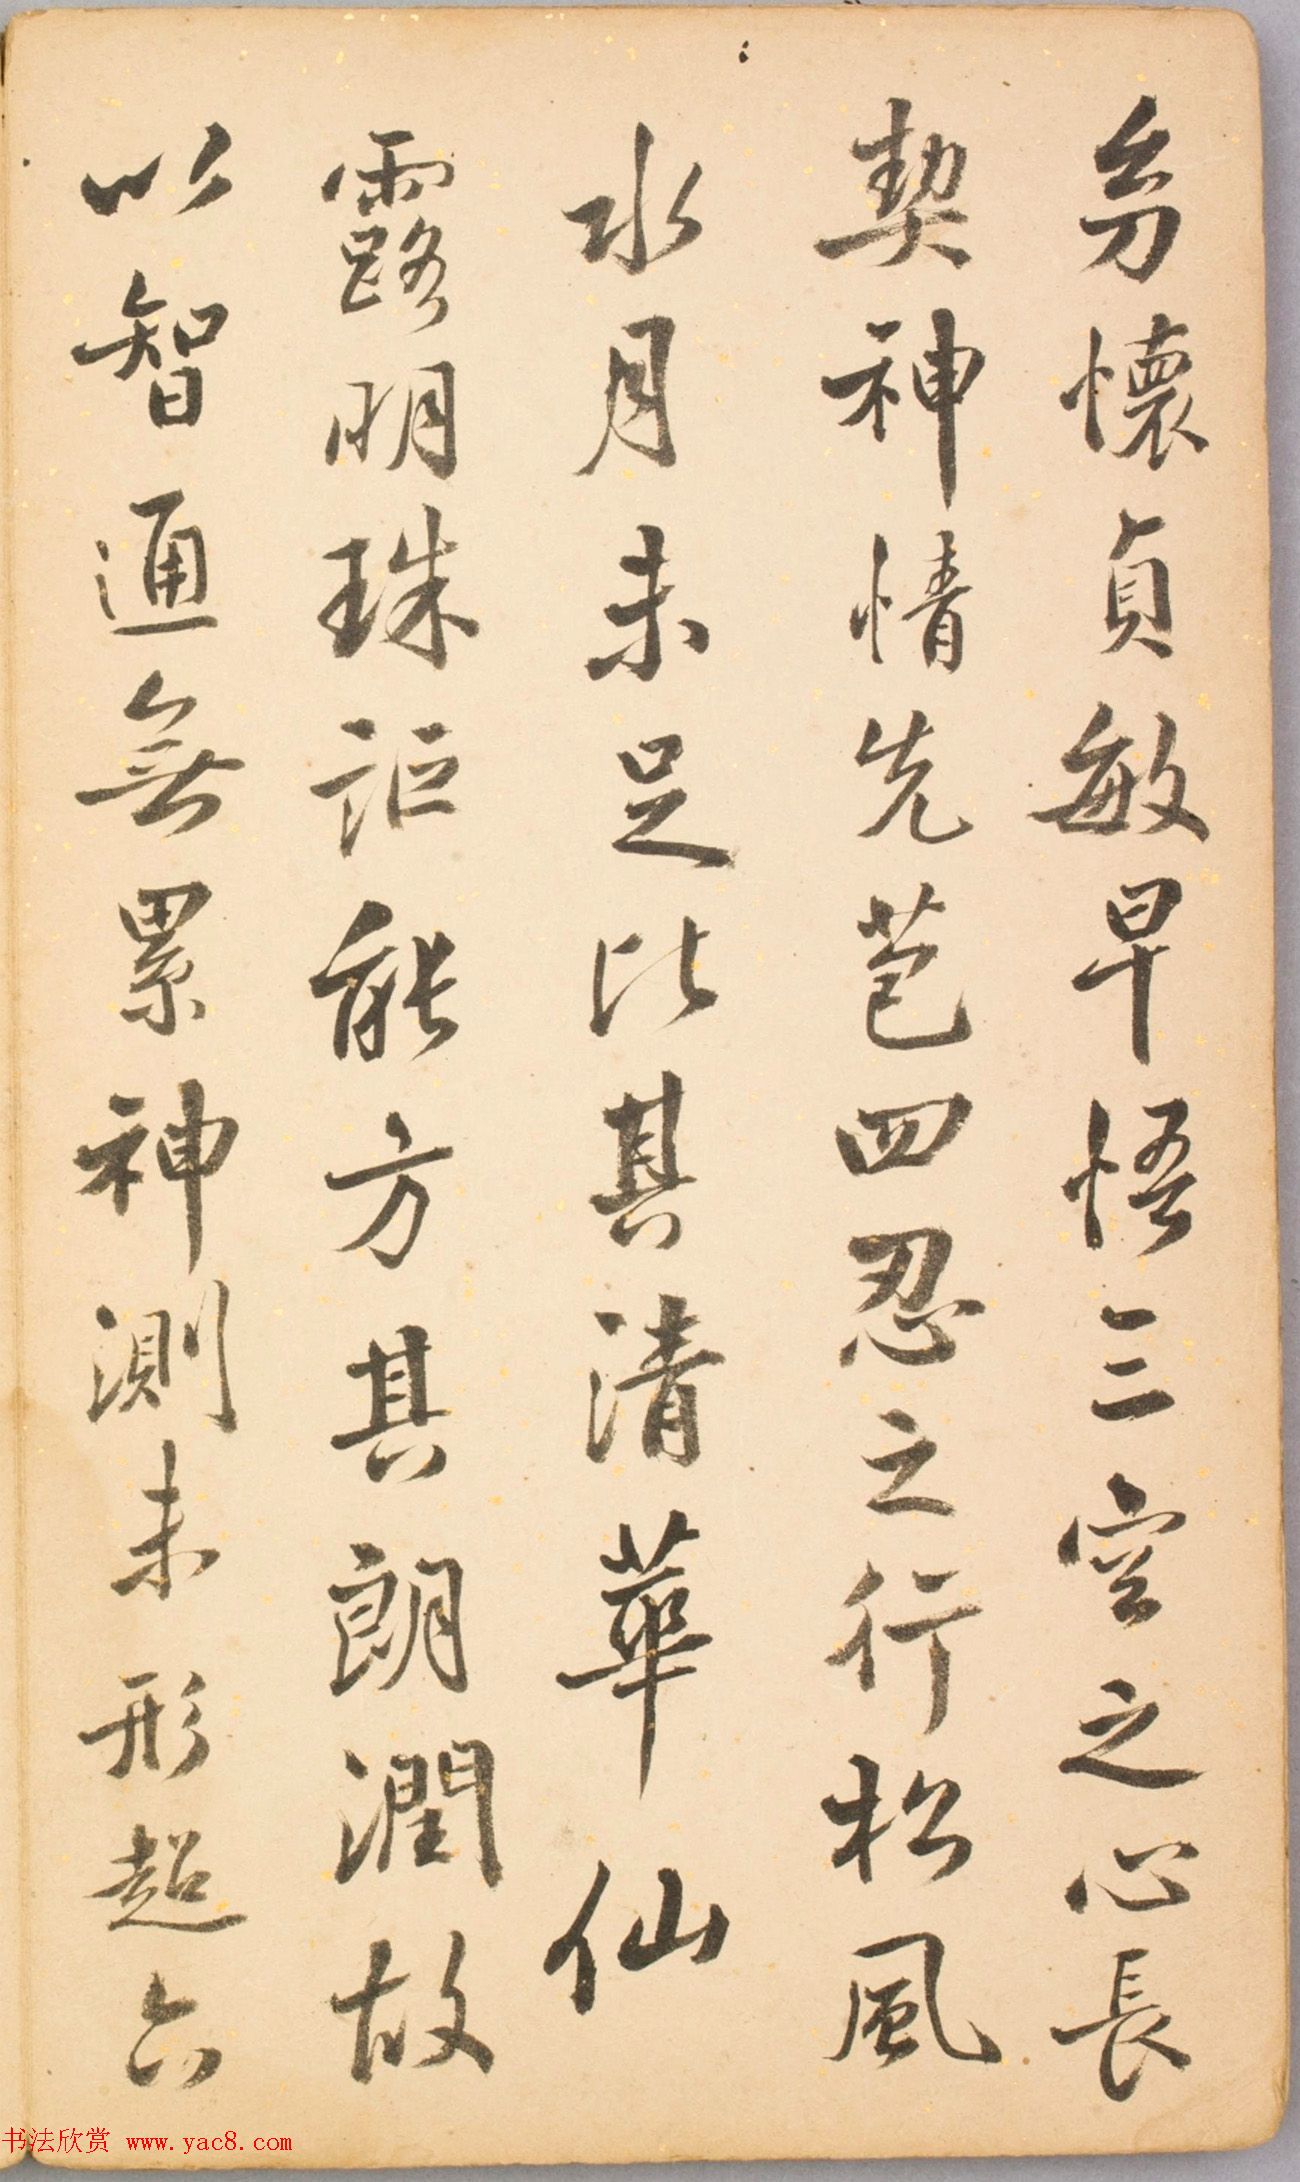 幼懷貞敏早悟三空之心長
契神情先苞四忍之行松風
水月未足比其清華仙
露明珠詎能方其朗潤故
以智通無累神測未形超六
书法欣赏 www.yac8.com